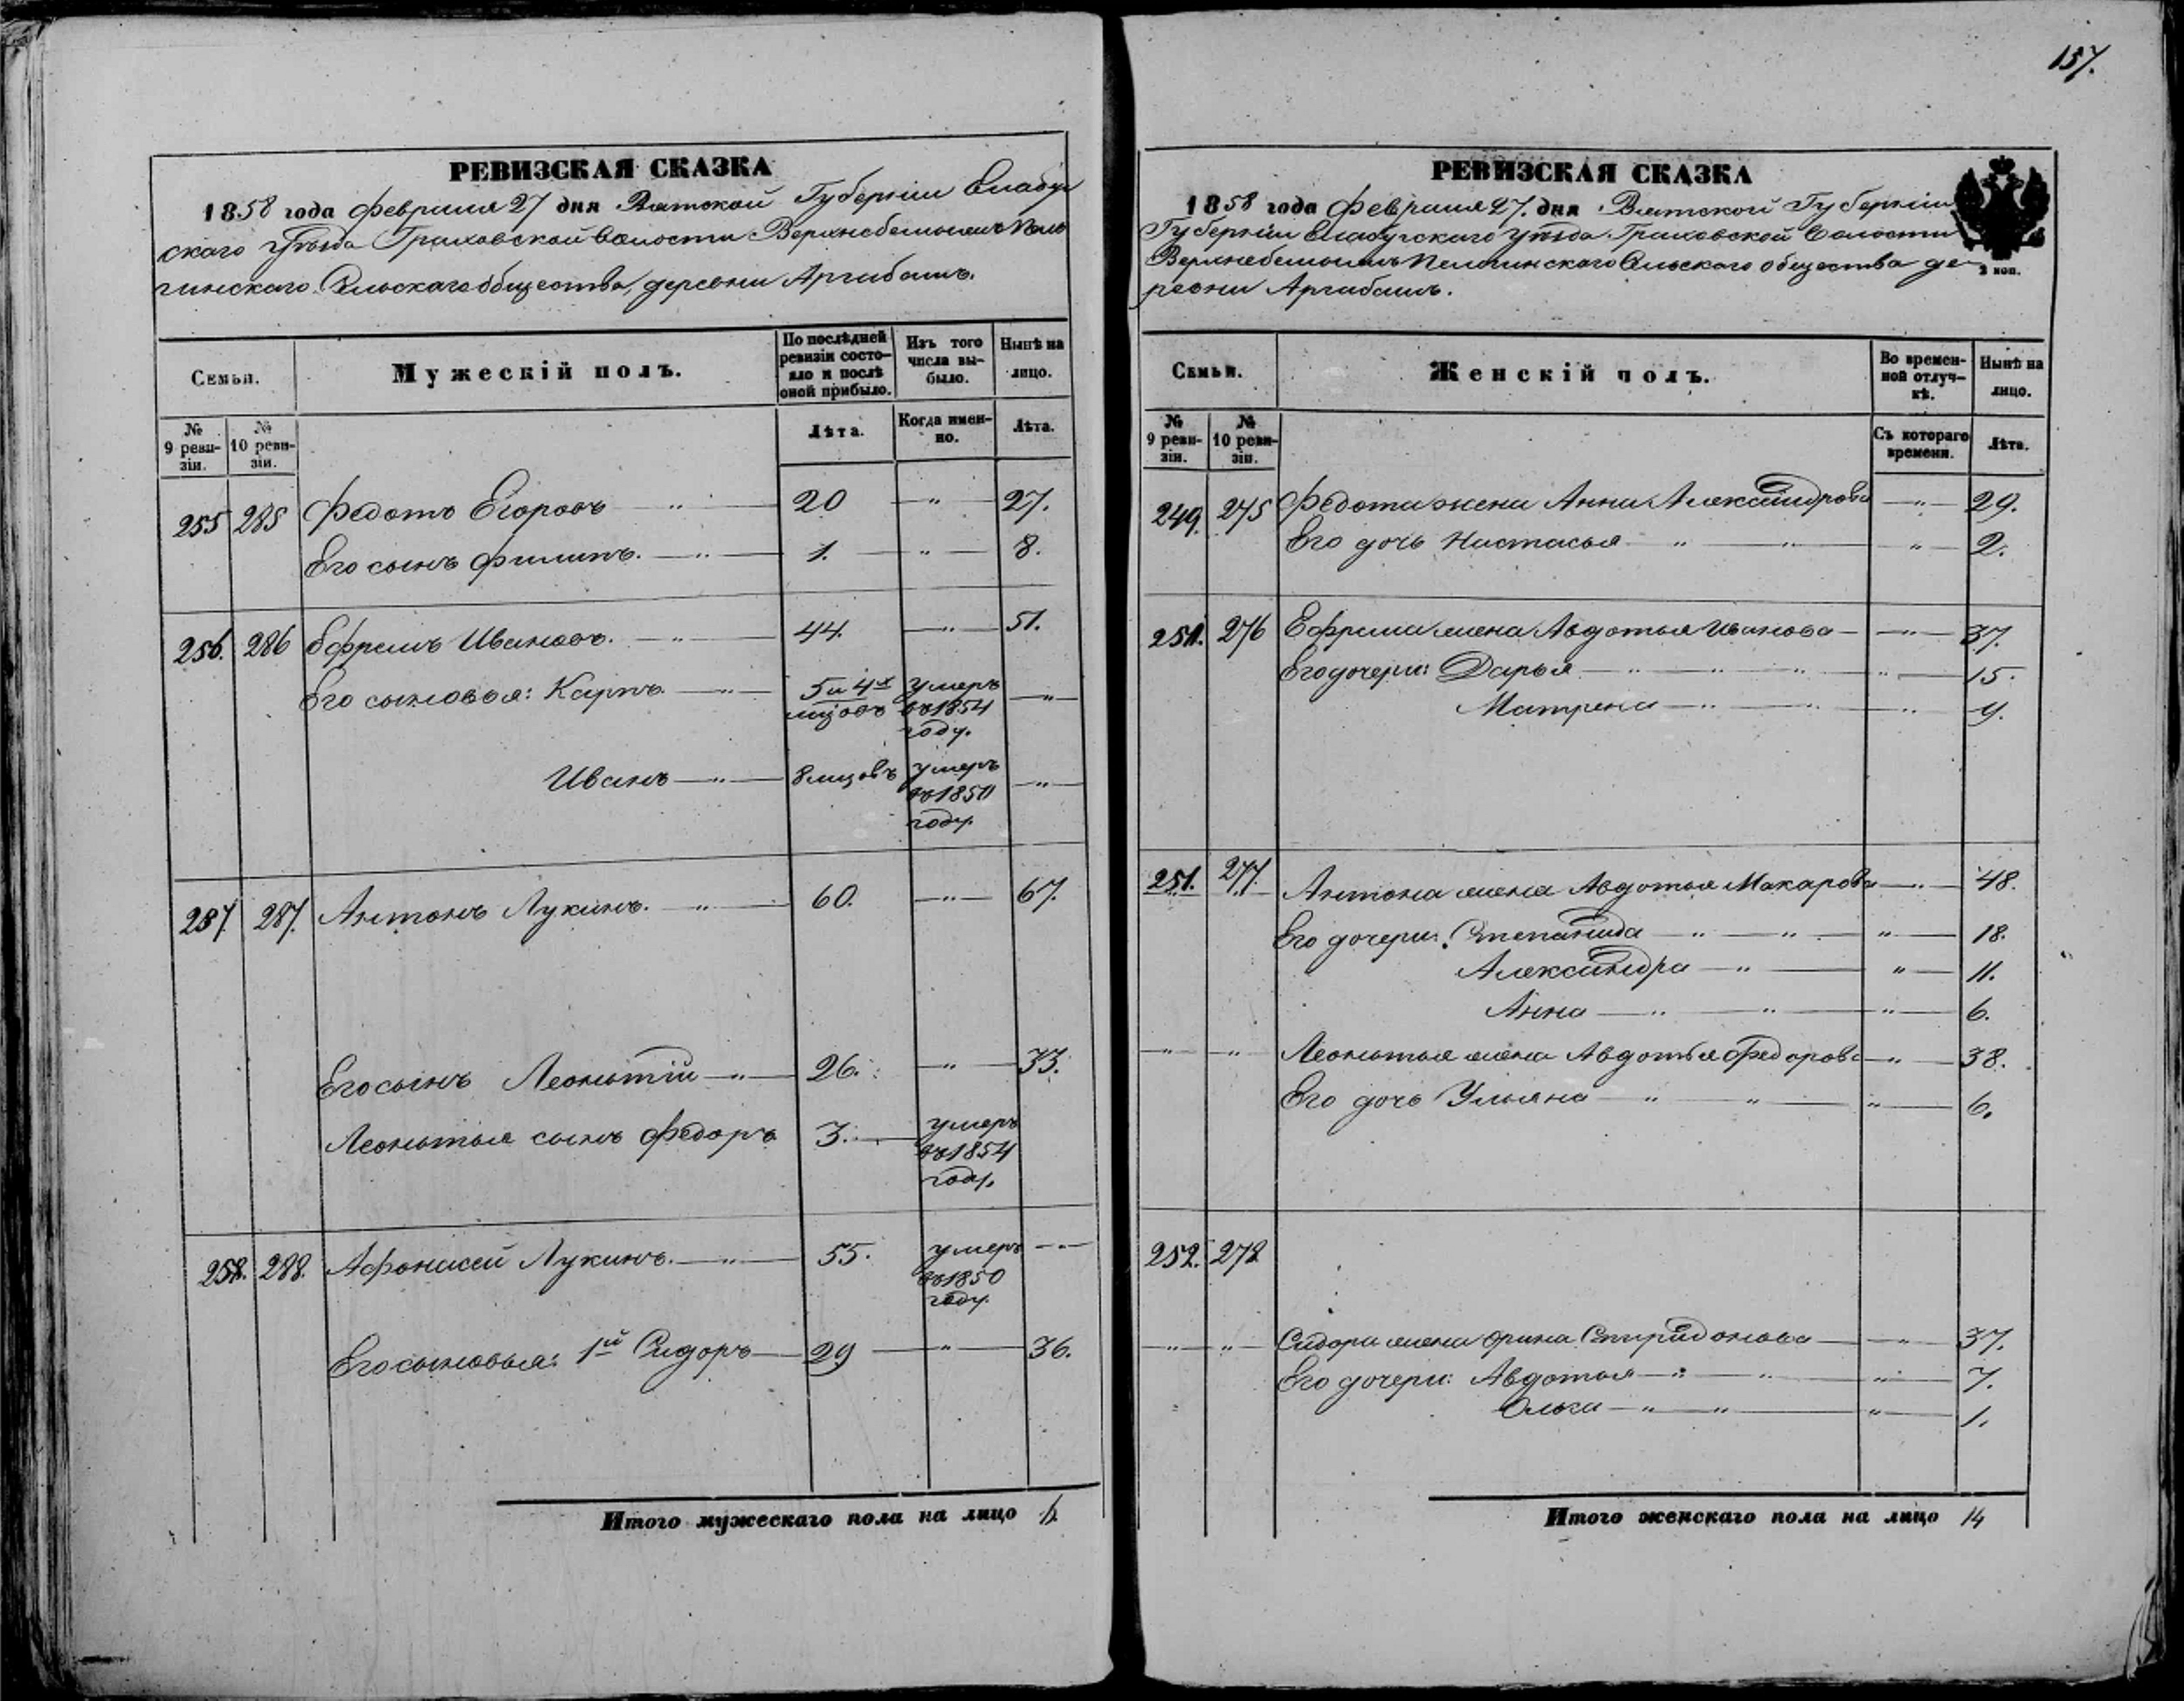 157.
РЕВИЗСКАЯ СКАЗКА
1858 года Февраля 27 дня Вятской Губерніи Елабуж
скаго уѣзда Граховской волости
гинскаго Сельскаго Общества, деревни Аргабашъ.
Семьи.
Мужескій полъ.
По послѣдней ревизіи состо-
яло и послѣ
оной прибыло.
Изъ того
числа вы-
было.
Нынѣ на
лицо.
№
9 реви-
зіи.
№
10 реви-
зіи.
Лѣта.
Когда имен-
но.
Лѣта.
255 285 Федотъ Егоровъ — " — 20 — " — 27.
Его сынъ Филипъ. — " — 1. — " — 8.
256. 286 Ефремъ Ивановъ. — " — 44. — " — 51.
Его сыновья: Карпъ — " — 5 и 4х мцовъ умеръ въ 1854 году. — " —
Иванъ — " — 8 мцовъ умеръ въ 1850 году. — " —
257. 287. Антонъ Лукинъ. — " — 60. — " — 67.
Его сынъ Леонтій — " — 26. — " — 33.
Леонтья сынъ Федоръ 3. — умеръ въ 1854 году.
258. 288. Афонасей Лукинъ. — " — 55. умеръ въ 1850 году. — " —
Его сыновья: 1й Сидоръ — 29 — " — 36.
Итого мужескаго пола на лицо 6.
РЕВИЗСКАЯ СКАЗКА
1858 года Февраля 27. дня Вятской Губерніи
Губерніи Елабужскаго уѣзда Граховской волости
Сельскаго общества де-
ревни Аргабашъ.
2 коп.
Семьи.
Женскій полъ.
Во времен-
ной отлуч-
кѣ.
Нынѣ на
лицо.
№
9 реви-
зіи.
№
10 реви-
зіи.
Съ котораго
времени.
Лѣта.
249. 275 Федота жена Анна Александрова — " — 29.
Его дочь Настасья " — " — " — 2.
251. 276 Ефрема жена Авдотья Иванова — " — 37.
Его дочери: Дарья — " — " — " — " — 15.
Матрена — " — " — " — 9.
251. 277. Антона жена Авдотья Макарова — " — 48.
Его дочери: Степанида — " — " — " — 18.
Александра — " — " — 11.
Анна — " — " — " — 6.
— " — " — Леонтья жена Авдотья Федорова — " — 38.
Его дочь Ульяна — " — " — " — 6.
252. 278
— " — " — Сидора жена Орина Спиридонова — " — 37.
Его дочери: Авдотья — " — " — " — 7.
Ольга — " — " — " — 1.
Итого женскаго пола на лицо 14